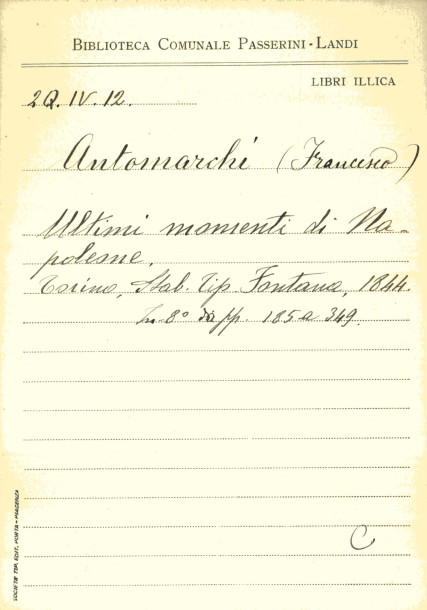 BIBLIOTECA COMUNALE PASSERINI-LANDI
LIBRI ILLICA
2Q.IV.12.
Antomarchi (Francesco)
Ultimi momenti di Na-
poleone.
Torino, Stab. Tip. Fontana, 1844.
In 8° da pp. 185 a 349.
C
SOCIETÀ TIP. EDIT. PORTA-PIACENZA